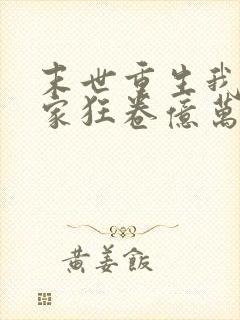 末世重生我
家狂卷億萬
黃姜飯